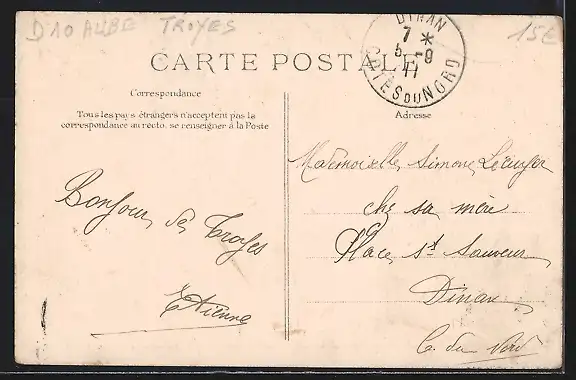 D10 AUBE TROYES
15€
DINAN
7 *
5 -9
11
COTES DU NORD
CARTE POSTALE
Correspondance
Tous les pays étrangers n'acceptent pas la
correspondance au recto, se renseigner à la Poste
Adresse
Bonjour de Troyes
Etienne
Mademoiselle Simone
chez sa mère
Place St Sauveur
Dinan
C. du Nord